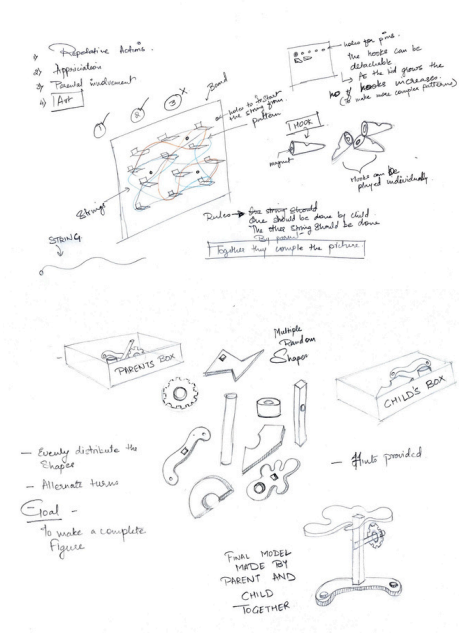 1) Repetative Actions.
2) Appriciation
3) Parental involvement
4) Art
1
2
3
Board
holes to instart
the string from
pattern
Strings
STRING
holes for pins.
the hooks can be
detachable
As the kid grows the
no of hooks increases.
(to make more complex patterns)
1 HOOK
magnet
Hooks can be
played individually
Rules → One string should
One should be done by child
The other string should be done
By parent
Together they comple the picture
PARENTS BOX
Multiple
Random
Shapes
CHILD'S BOX
- Evenly distribute the
Shapes
- Alternate turns
- Hints provided
Goal -
To make a complete
Figure
FINAL MODEL
MADE BY
PARENT AND
CHILD
TOGETHER